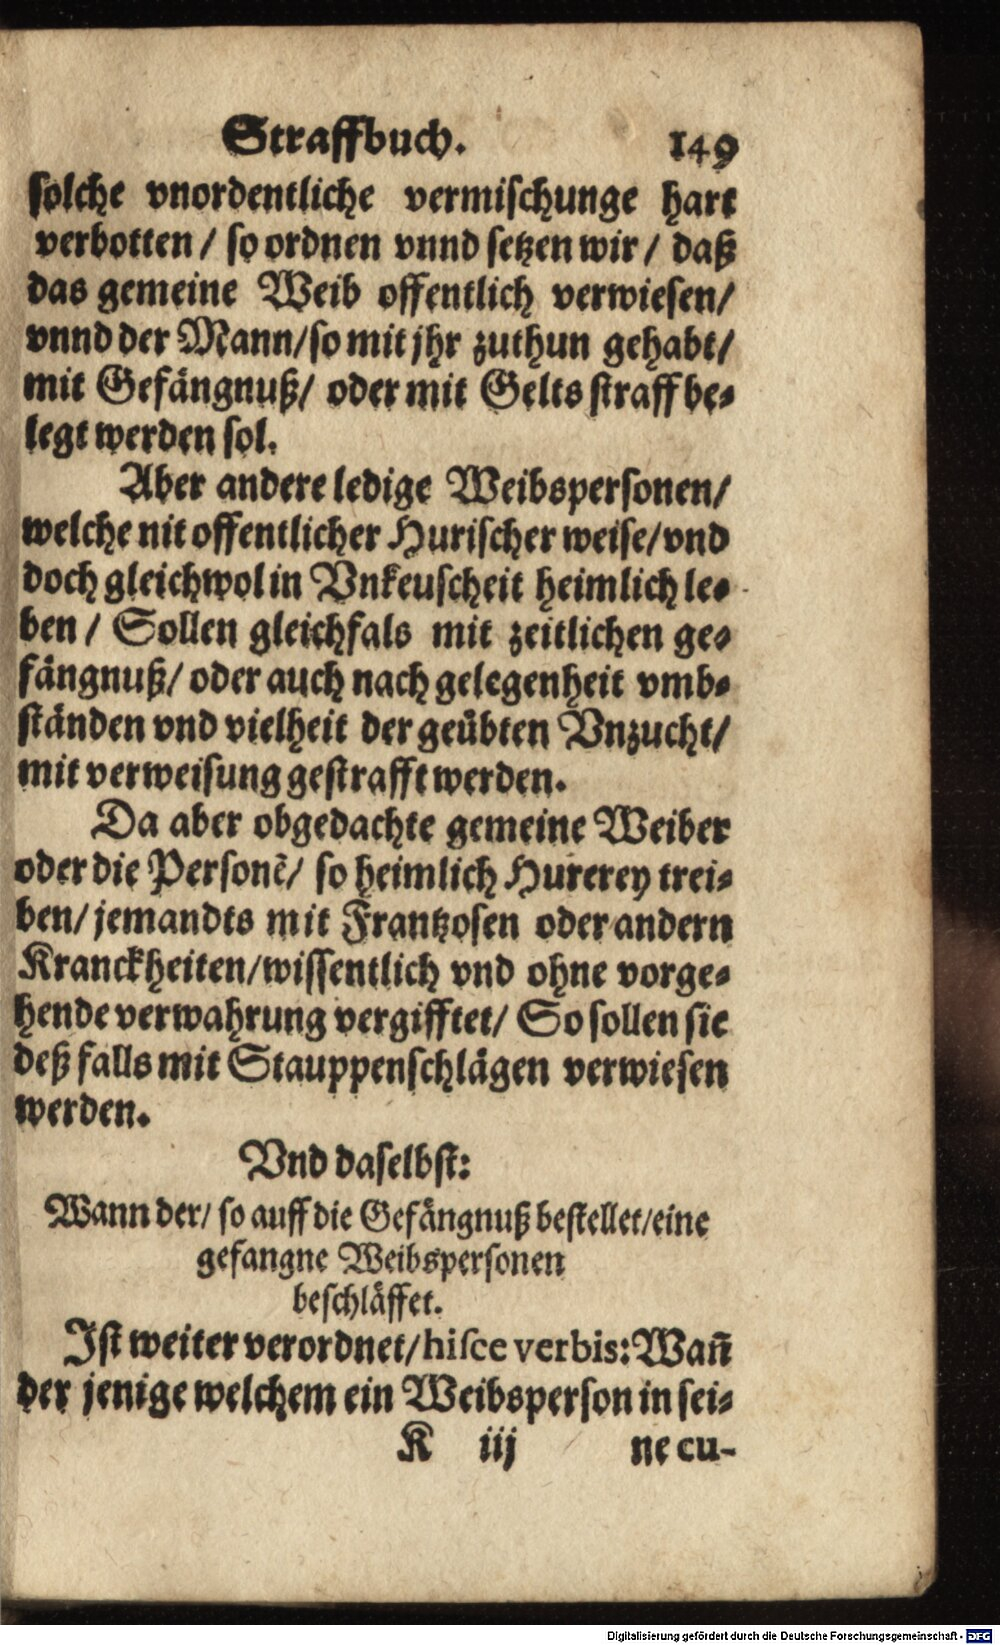 Straffbuch. 149
solche vnordentliche vermischunge hart
verbotten / so ordnen vnnd setzen wir / daß
das gemeine Weib offentlich verwiesen/
vnnd der Mann/so mit jhr zuthun gehabt/
mit Gefängnuß/ oder mit Gelts straff be-
legt werden sol.
Aber andere ledige Weibspersonen/
welche nit offentlicher Hurischer weise/vnd
doch gleichwol in Vnkeuscheit heimlich le-
ben / Sollen gleichfals mit zeitlichen ge-
fängnuß/ oder auch nach gelegenheit vmb-
ständen vnd vielheit der geübten Vnzucht/
mit verweisung gestrafft werden.
Da aber obgedachte gemeine Weiber
oder die Personẽ/ so heimlich Hurerey trei-
ben/ jemandts mit Frantzosen oder andern
Kranckheiten/wissentlich vnd ohne vorge-
hende verwahrung vergifftet/ So sollen sie
deß falls mit Stauppenschlägen verwiesen
werden.
Vnd daselbst:
Wann der/ so auff die Gefängnuß bestellet/eine
gefangne Weibspersonen
beschläffet.
Ist weiter verordnet/hisce verbis: Wañ
der jenige welchem ein Weibsperson in sei-
K iij ne cu-
Digitalisierung gefördert durch die Deutsche Forschungsgemeinschaft - DFG